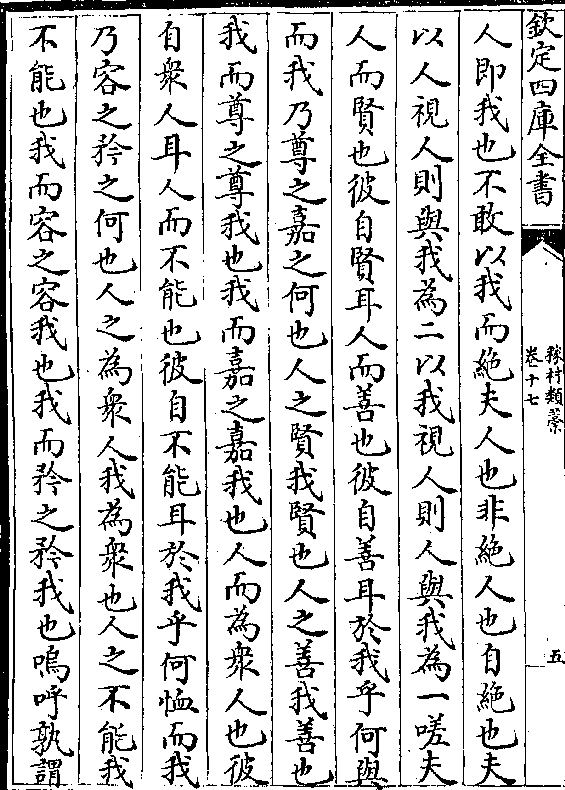 欽定四庫全書
稼村類藁
卷十七
五
人即我也不敢以我而絶夫人也非絶人也自絶也夫
以人視人則與我為二以我視人則人與我為一嗟夫
人而賢也彼自賢耳人而善也彼自善耳於我乎何與
而我乃尊之嘉之何也人之賢我賢也人之善我善也
我而尊之尊我也我而嘉之嘉我也人而為衆人也彼
自衆人耳人而不能也彼自不能耳於我乎何恤而我
乃容之矜之何也人之為衆人我為衆也人之不能我
不能也我而容之容我也我而矜之矜我也嗚呼孰謂